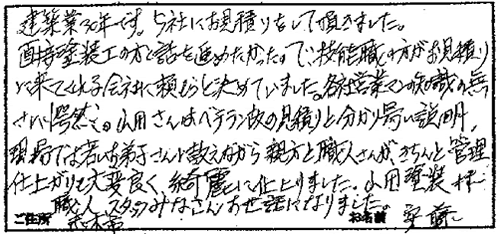 建築業30年です。5社にお見積りをして頂きました。
直接塗装工の方と話を進めたかったので技能職の方がお見積り
に来てくれる会社に頼もうと決めていました。各社営業マンの知識の無
さに愕然と。山田さんはベテラン故の見積りと分かり易い説明、
現場では若いお弟子さんに教えながら親方と職人さんが、きちんと管理
仕上がりも大変良く、綺麗に仕上りました。山田塗装様
職人、スタッフみなさんお世話になりました。
ご住所 お名前